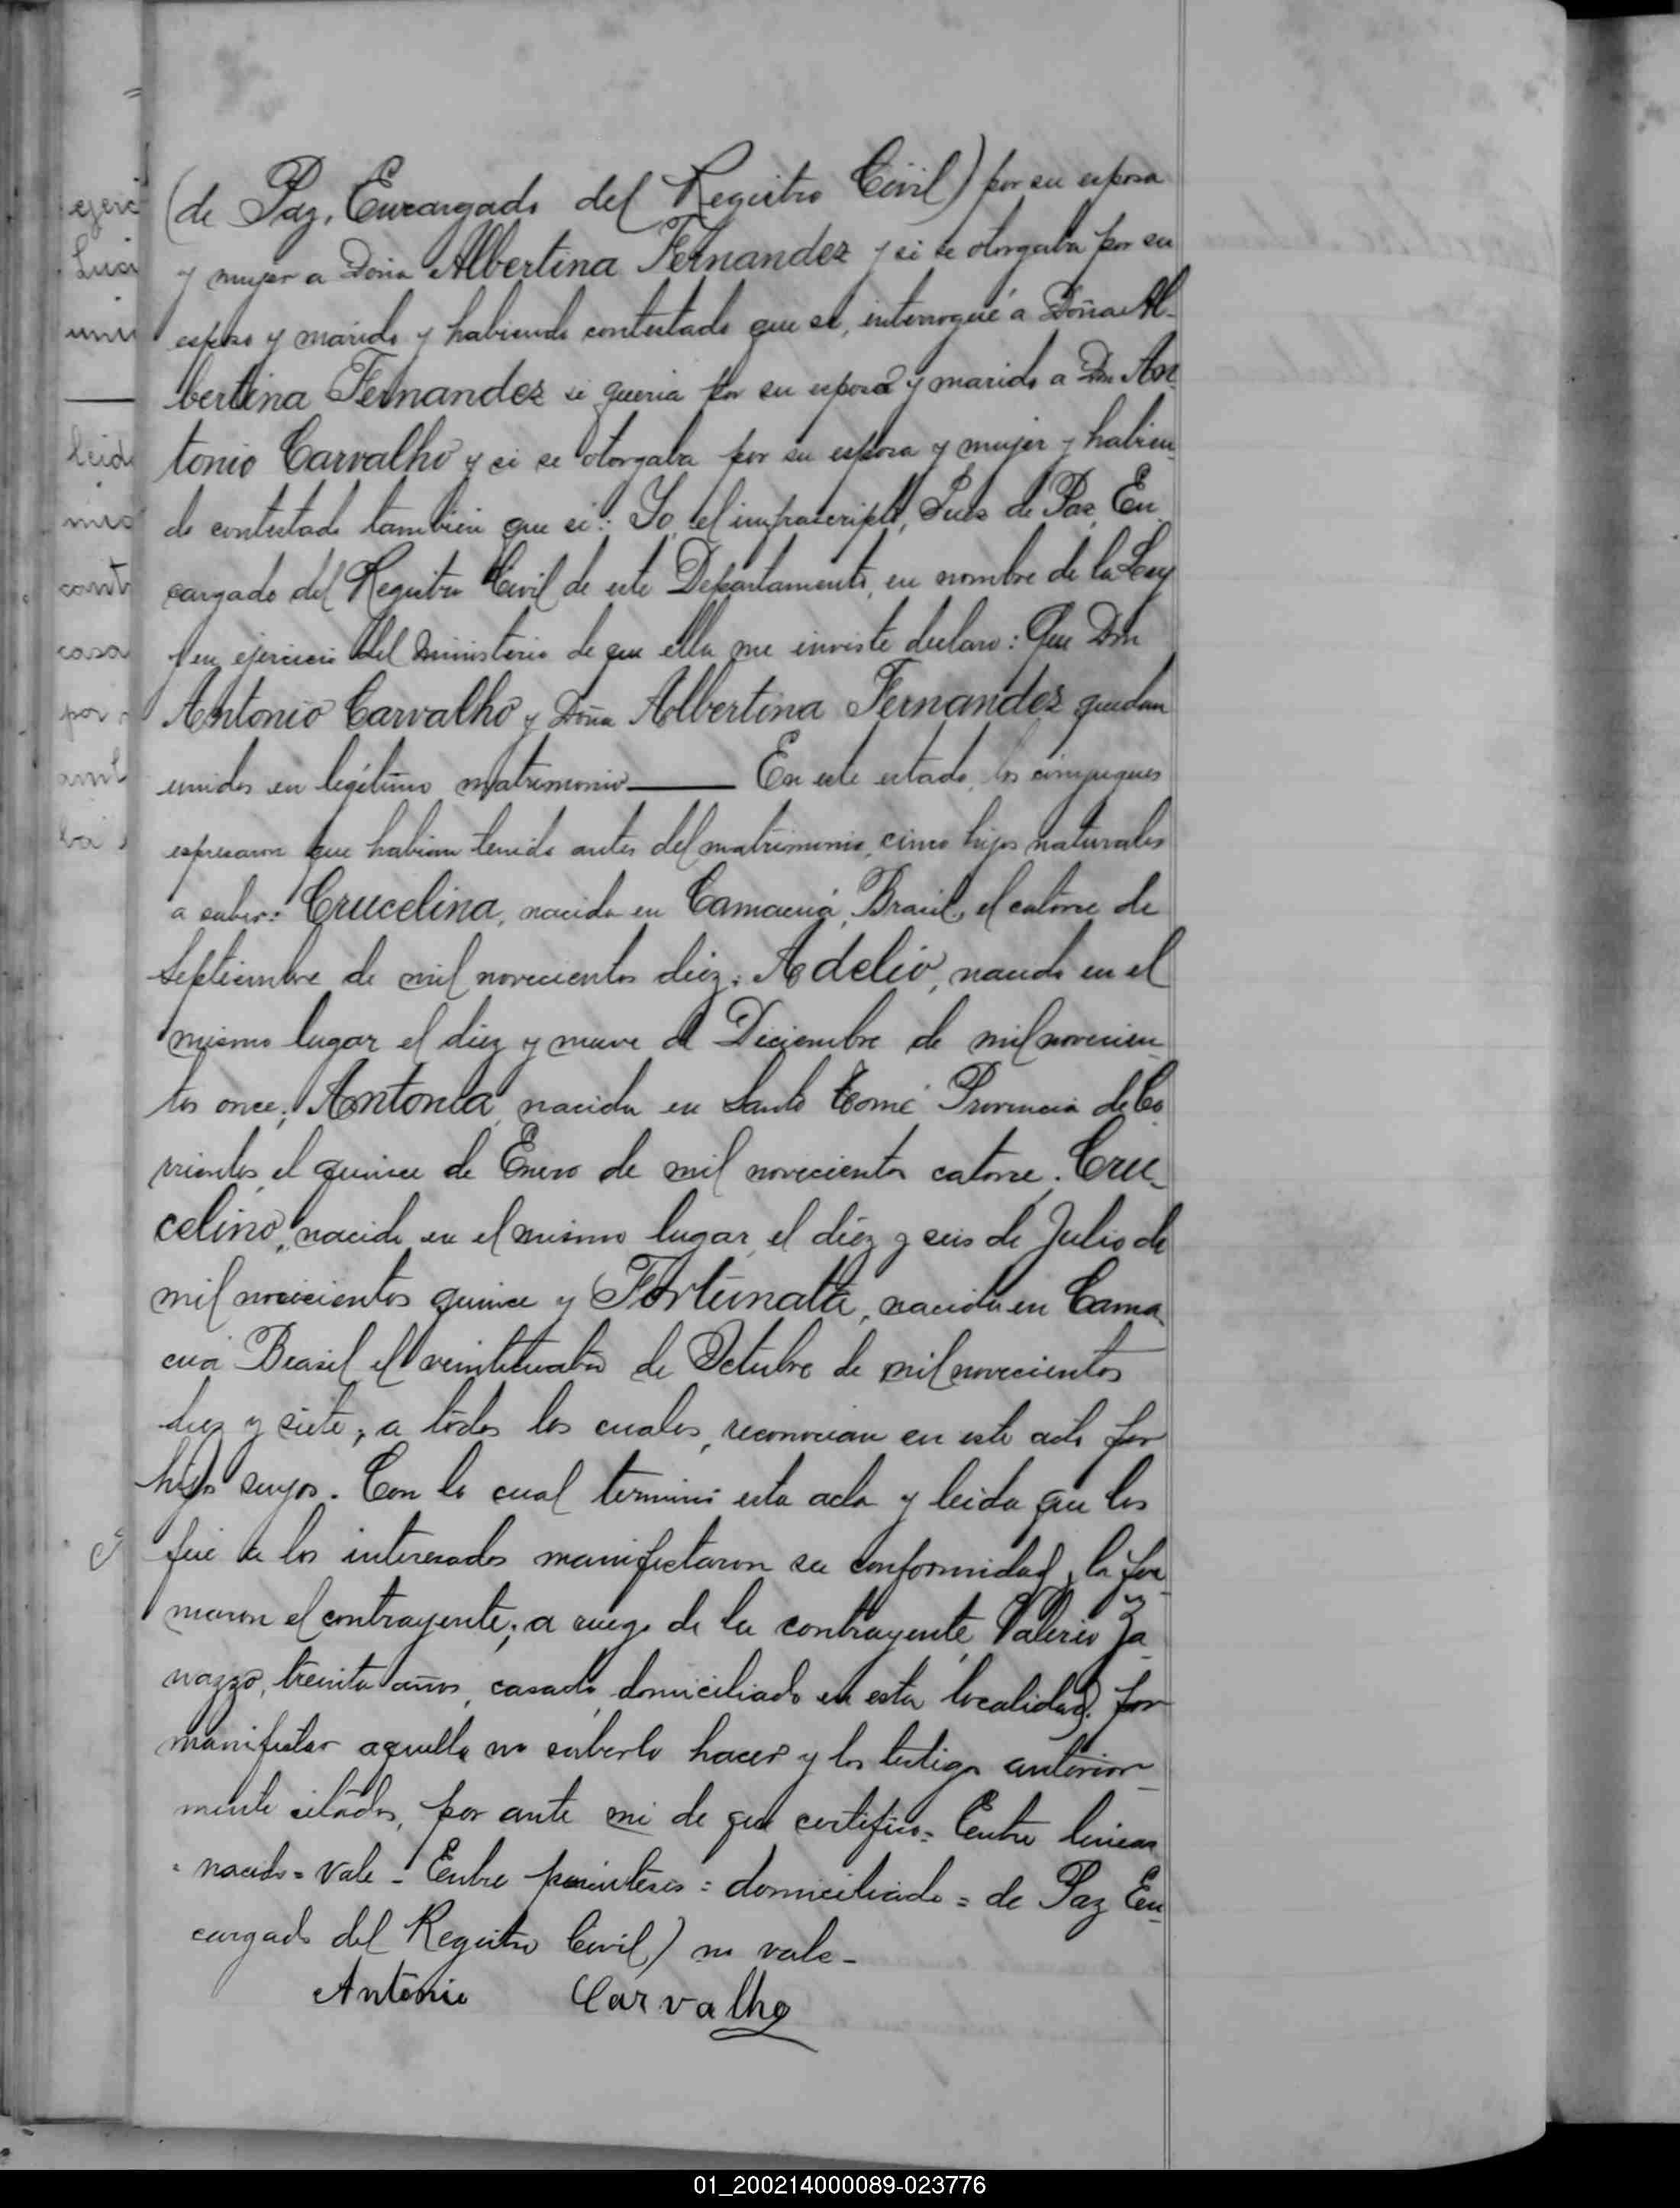 (de Paz, Encargado del Registro Civil) por su esposa
y mujer a Doña Albertina Fernandez y si se otorgaba por su
esposo y marido y habiendo contestado que si, interrogué á Doña Al-
bertina Fernandez si queria por su esposo y marido a Don An
tonio Carvalho y si se otorgaba por su esposa y mujer y habien
do contestado tambien que si: Yo, el infrascripto, Juez de Paz, En
cargado del Registro Civil de este Departamento, en nombre de la Ley
y en ejercicio del ministerio de que ella me inviste declaro: Que Don
Antonio Carvalho y Doña Albertina Fernandez quedan
unidos en legítimo matrimonio——— En este estado, los cónyugues
espresaron que habian tenido antes del matrimonio, cinco hijos naturales
a saber: Crucelina, nacida en Camacuá, Brasil, el catorce de
Septiembre de mil novecientos diez; Adelio, nacido en el
mismo lugar el diez y nueve de Diciembre de mil novecien
tos once; Antonia, nacida en Santo Tomé Provincia de Co
rrientes, el quince de Enero de mil novecientos catorce; Cru-
celino, nacido en el mismo lugar, el diez y seis de Julio de
mil novecientos quince y Fortunata, nacida en Cama
cuá Brasil el veinticuatro de Octubre de mil novecientos
diez y siete; a todos los cuales, reconocian en este acto por
hijos suyos. Con lo cual terminó esta acta y leida que les
fué a los interesados manifestaron su conformidad, la fir
maron el contrayente; a ruego de la contrayente, Valerio Ja
nazzo, treinta años, casado, domiciliado en esta localidad, por
manifestar aquella no saberlo hacer y los testigos anterior-
mente citados, por ante mi de que certifico= Entre lineas
= nacido = Vale - Entre paréntesis = domiciliado = de Paz En-
cargado del Registro Civil) no vale-
Antonio Carvalho
01_200214000089-023776